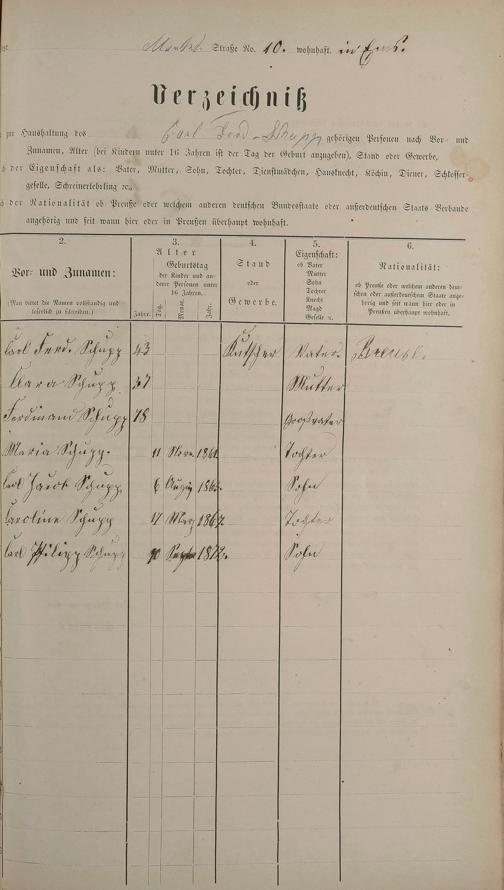 Markt. Straße No. 10. wohnhaft. in Ems.
Verzeichniß
zur Haushaltung des Carl Ferd. Schupp gehörigen Personen nach Vor- und
Zunamen, Alter (bei Kindern unter 16 Jahren ist der Tag der Geburt anzugeben), Stand oder Gewerbe,
der Eigenschaft als: Vater, Mutter, Sohn, Tochter, Dienstmädchen, Hausknecht, Köchin, Diener, Schlosser-
geselle, Schreinerlehrling ꝛc.,
der Nationalität ob Preuße oder welchem anderen deutschen Bundesstaate oder außerdeutschen Staats-Verbande
angehörig und seit wann hier oder in Preußen überhaupt wohnhaft.
2. 3. 4. 5. 6.
Vor- und Zunamen:
(Man bittet die Namen vollständig und
leserlich zu schreiben.)
Alter
Geburtstag
der Kinder und an-
derer Personen unter
16 Jahren.
Jahre. Tag. Monat. Jahr.
Stand
oder
Gewerbe.
Eigenschaft:
ob Vater
Mutter
Sohn
Tochter
Knecht
Magd
Geselle ꝛc.
Nationalität:
ob Preuße oder welchem anderen deut-
schen oder außerdeutschen Staate ange-
hörig und seit wann hier oder in
Preußen überhaupt wohnhaft.
Carl Ferd. Schupp 43 Kutscher Vater. Preuß.
Clara Schupp 37 Mutter
Ferdinand Schupp 78 Großvater
Maria Schupp. 11 Nov. 1861. Tochter
Carl Jacob Schupp. 6 1865. Sohn
Caroline Schupp 17 Merz 1867. Tochter
Carl Philipp Schupp 10 1872. Sohn